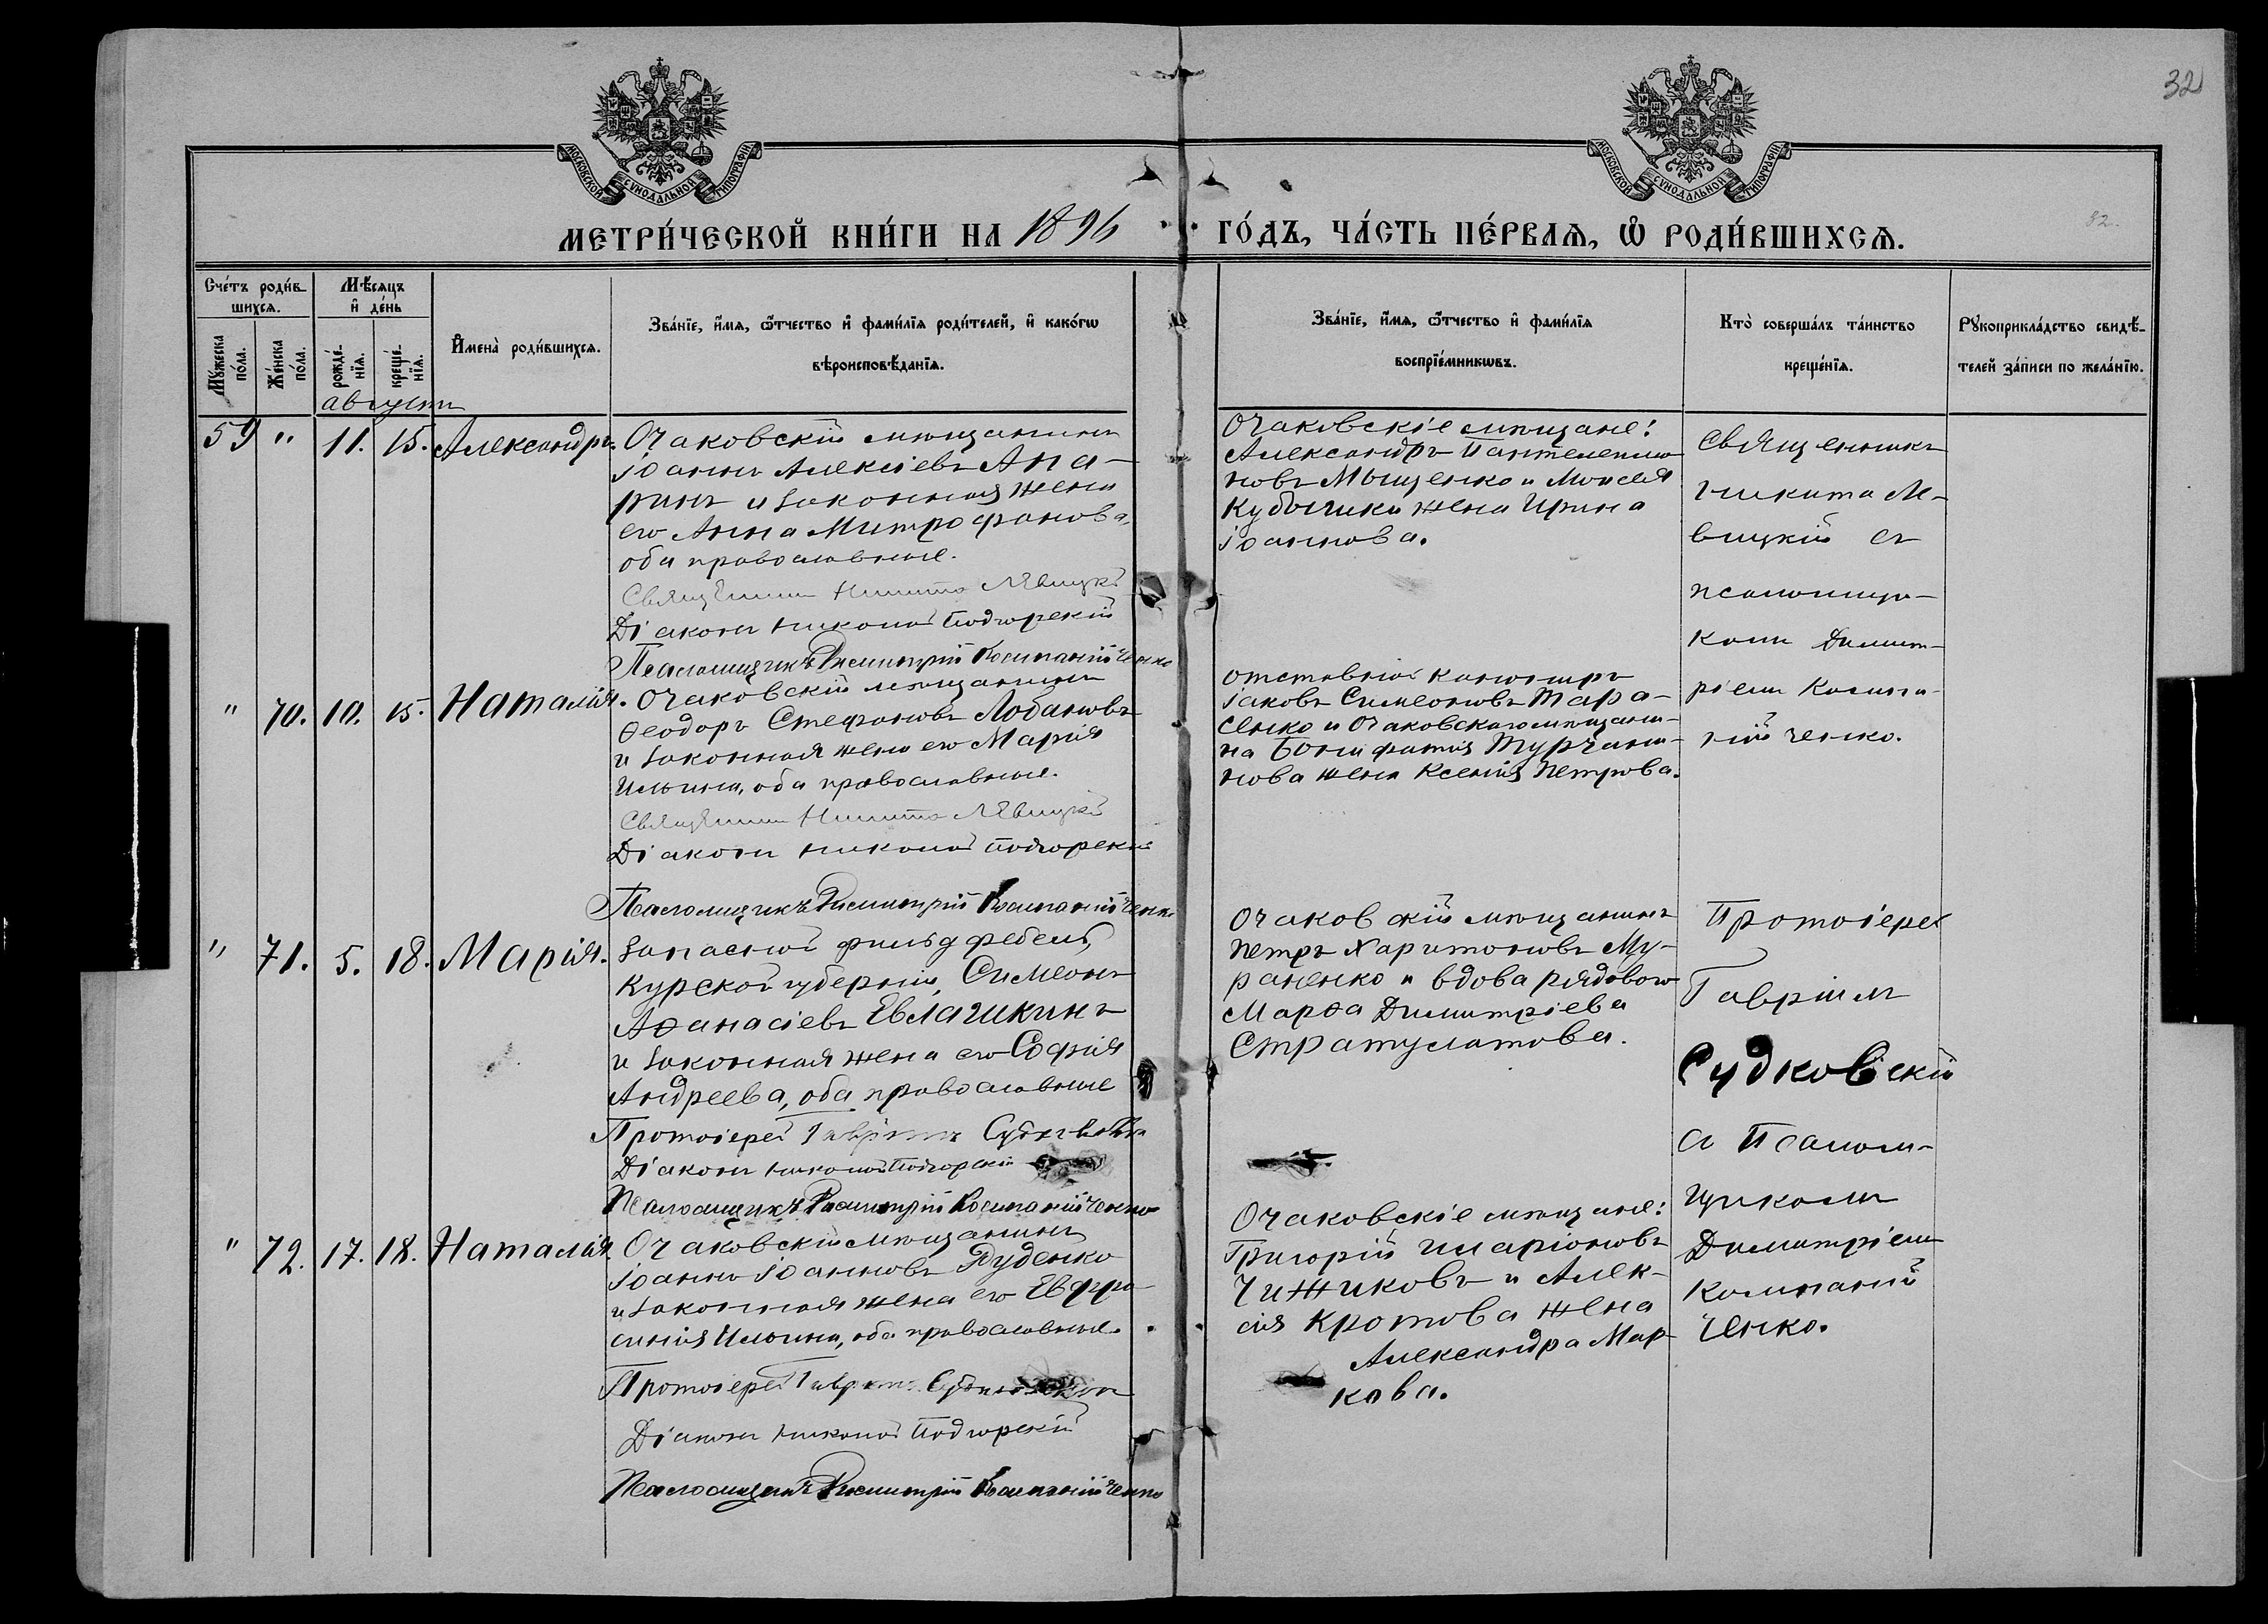 32
МОСКОВСКОЙ СѴНОДАЛЬНОЙ ТИПОГРАФІИ
МОСКОВСКОЙ СѴНОДАЛЬНОЙ ТИПОГРАФІИ
82.
МЕТРИ́ЧЕСКОЙ КНИ́ГИ НА 1896 ГО́ДЪ, ЧА́СТЬ ПЕ́РВАѦ, Ѡ҆ РОДИ́ВШИХСѦ.
Сче́тъ роди́в-
шихсѧ.
Мꙋ́жеска по́ла.
Же́нска по́ла.
Мѣ́сѧцъ
и҆ де́нь
рожде́-
нїѧ.
креще́-
нїѧ.
И҆мена̀ роди́вшихсѧ.
Зва́нїе, и҆́мѧ, ѻ҆́тчество и҆ фами́лїѧ роди́телей, и҆ како́гѡ
вѣроисповѣ́данїѧ.
Зва́нїе, и҆́мѧ, ѻ҆́тчество и҆ фами́лїѧ
воспрїе́мникѡвъ.
Кто̀ соверша́лъ та́инство
креще́нїѧ.
Рꙋкоприкла́дство свидѣ́-
телей за́писи по жела́нїю.
августъ
59 " 11. 15. Александръ.
Очаковскій мѣщанинъ
Іоаннъ Алексіевъ Апа-
ринъ и законная жена
его Анна Митрофанова,
оба православные.
Священникъ Никита Лѣвицкій
Діаконъ Николай Подгорскій
Псаломщикъ Димитрій Компанійченко
Очаковскіе мѣщане:
Александръ Пантелеимо-
новъ Мыщенко и Моисея
Кубышки жена Ирина
Іоаннова.
Священникъ
Никита Ле-
вицкій съ
псаломщи-
комъ Димит-
ріемъ Компа-
нійченко.
" 70. 10. 15. Наталія.
Очаковскій мѣщанинъ
Ѳеодоръ Стефановъ Лобановъ
и законная жена его Марія
Ильина, оба православные.
Священникъ Никита Лѣвицкій
Діаконъ Николай Подгорскій
Псаломщикъ Димитрій Компанійченко
Отставной канониръ
Іаковъ Симеоновъ Тара-
сенко и Очаковскаго мѣщани-
на Бонифатія Турчани-
нова жена Ксенія Петрова.
" 71. 5. 18. Марія.
Запасной фильдфебель,
Курской губерніи, Симеонъ
Аѳанасіевъ Евлашкинъ
и законная жена его Софія
Андреева, оба православные
Протоіерей Гавріилъ Судковскій
Діаконъ Николай Подгорскій
Псаломщикъ Димитрій Компанійченко
Очаковскій мѣщанинъ
Петръ Харитоновъ Му-
раненко и вдова рядоваго
Марѳа Димитріева
Стратулатова.
Протоіерей
Гавріилъ
Судковскій
съ Псалом-
щикомъ
Димитріемъ
Компаній
ченко.
" 72. 17. 18. Наталія.
Очаковскій мѣщанинъ
Іоаннъ Іоанновъ Руденко
и законная жена его Евфро-
синія Ильина, оба православные.
Протоіерей Гавріилъ Судковскій
Діаконъ Николай Подгорскій
Псаломщикъ Димитрій Компанійченко
Очаковскіе мѣщане:
Григорій Иларіоновъ
Чижиковъ и Алек-
сія Кротова жена
Александра Мар-
кова.